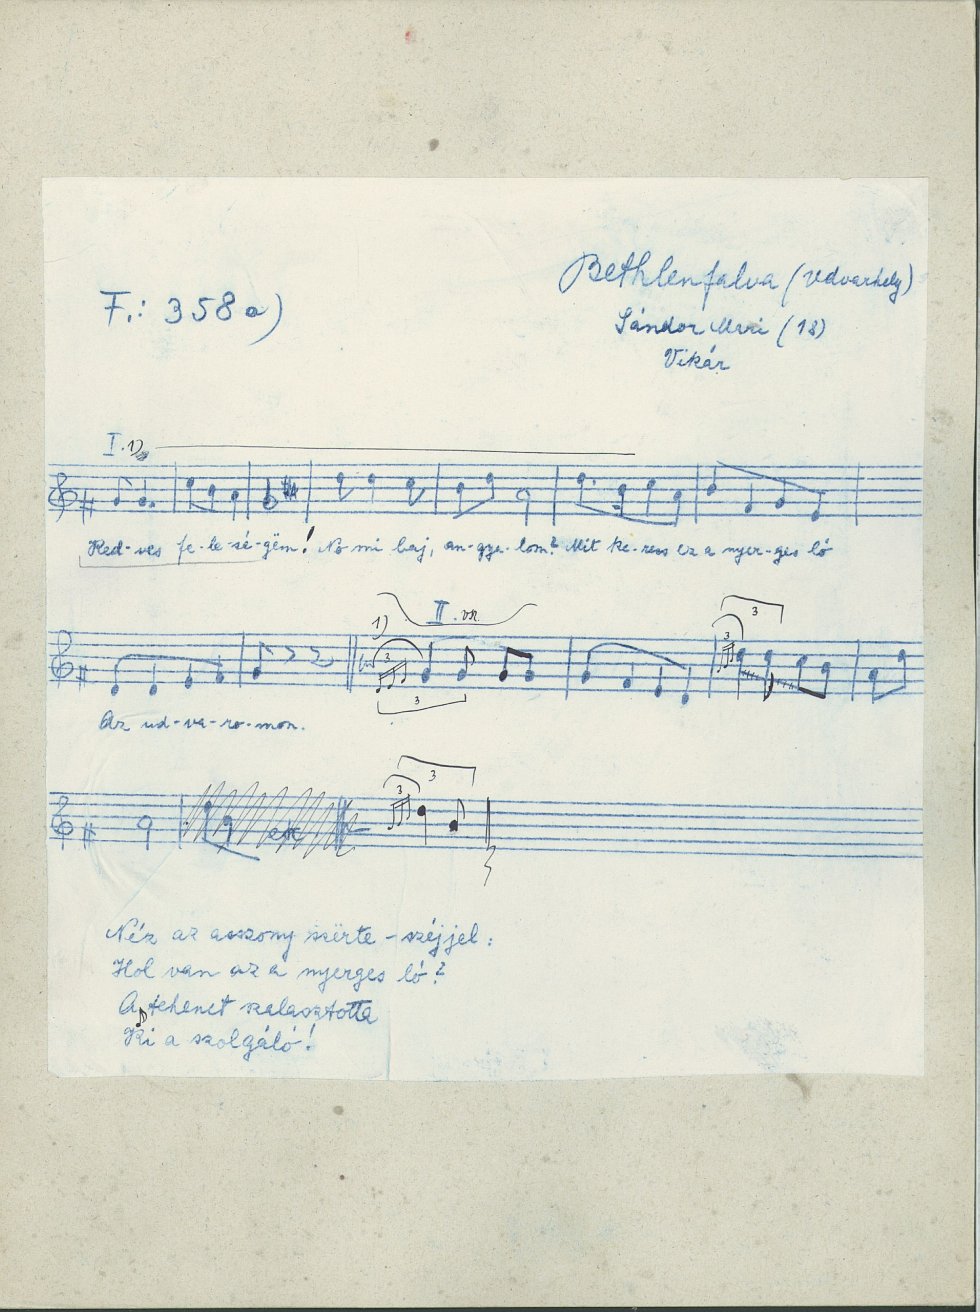 F.: 358 a)
Bethlenfalva (Udvarhely)
Sándor Mari (18)
Vikár
I. 1)
Ked-ves fe-le-sé-gëm! No mi baj, an-gya-lom? Mit ke-ress ez a nyer-ges ló
1) II. vsz.
3
3
3
3
Az ud-va-ro-mon.
3
3
Néz az asszony szërte-széjjel:
Hol van az a nyerges ló?
A tehenet szalasztotta
Ki a szolgáló!